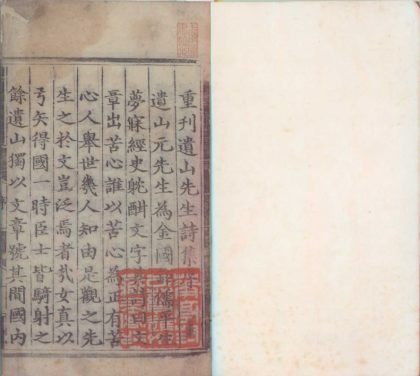 重刊遺山先生詩集序
遺山元先生為金國儒平生
夢寐經史躭酣文字詩曰文
章出苦心誰以苦心為正有苦
心人舉世幾人知由是觀之先
生之於文豈泛焉者㢤女真以
弓矢得國一時臣士皆騎射之
餘遺山獨以文章號其間國內